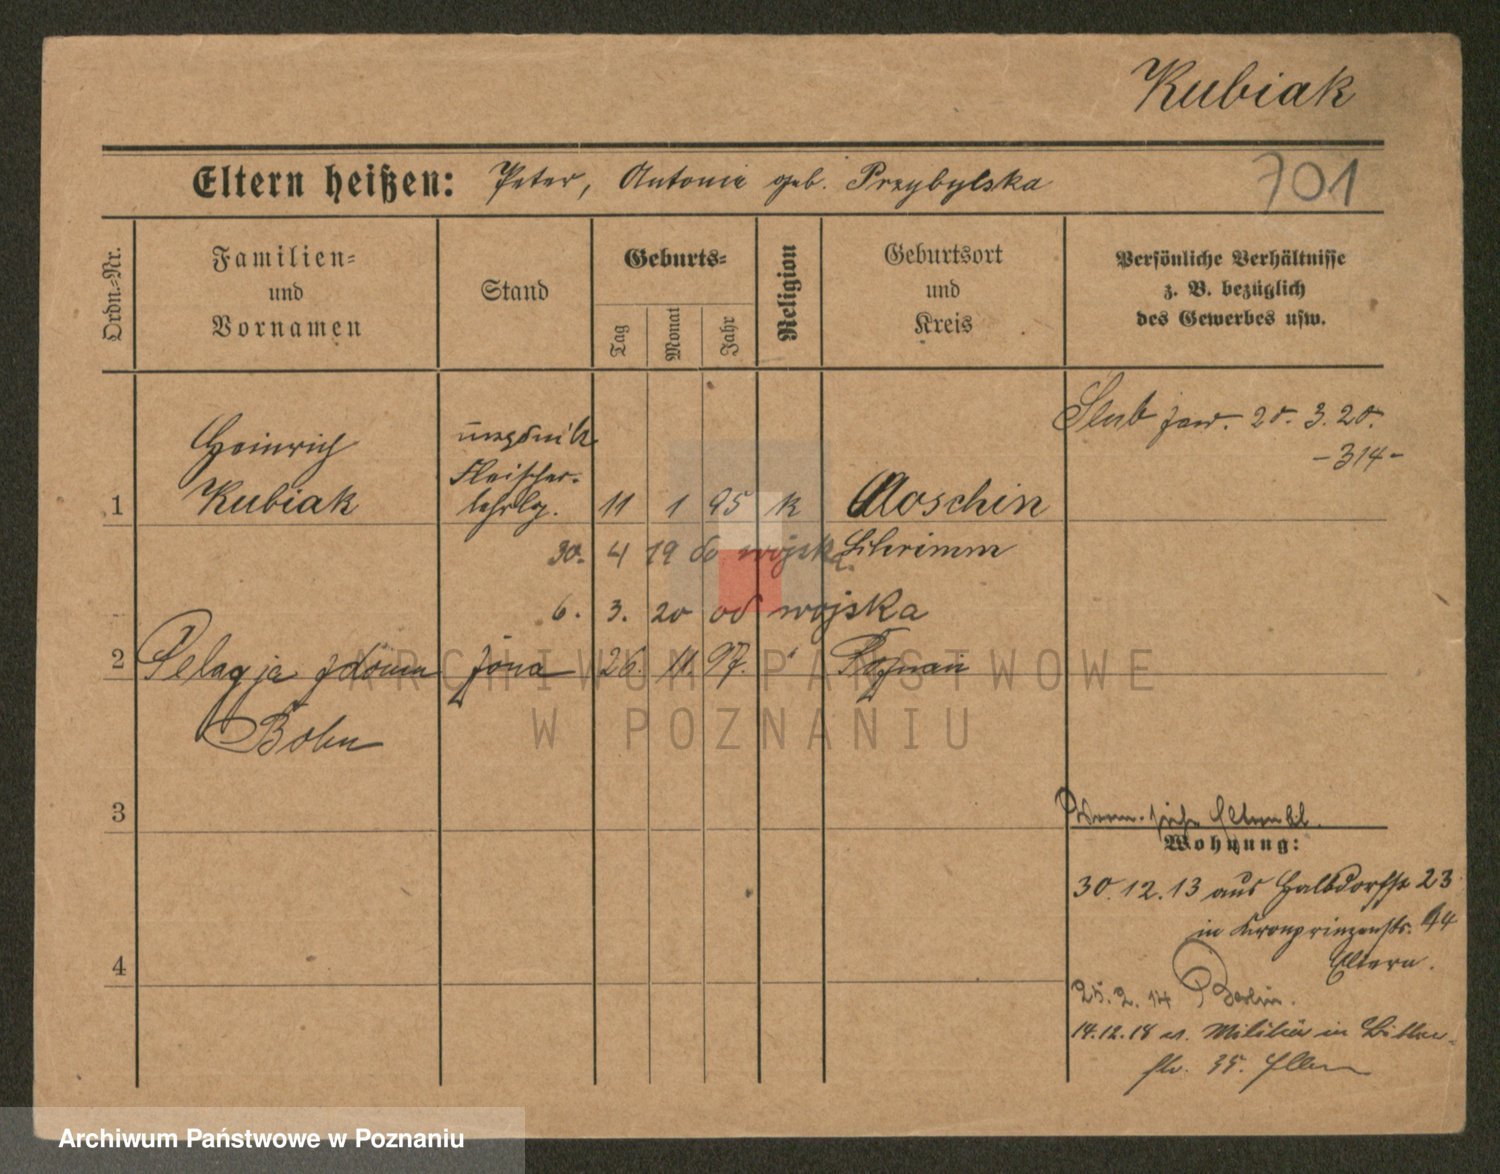 Kubiak
701
Eltern heißen: Peter, Antonie geb. Przybylska
Ordn.=Nr.
Familien=
und
Vornamen
Stand
Geburts=
Tag
Monat
Jahr
Religion
Geburtsort
und
Kreis
Persönliche Verhältnisse
z. B. bezüglich
des Gewerbes usw.
Ślub zaw. 20. 3. 20.
-314-
1
Heinrich
Kubiak
urzędnik
Fleischer-
lehrlg.
11 1 95 k Moschin
Schrimm
30. 4 19 do wojska
6. 3. 20 od wojska
2 Pelagja żona 26. 11. 97. Poznań
3
4
Wohnung:
30.12.13 aus Halbdorfstr 23
in Kronprinzenstr. 44
Eltern.
25.2.14 Berlin.
14.12.18 v. Militär in
str. 35. Eltern
ARCHIWUM PAŃSTWOWE
W POZNANIU
Archiwum Państwowe w Poznaniu